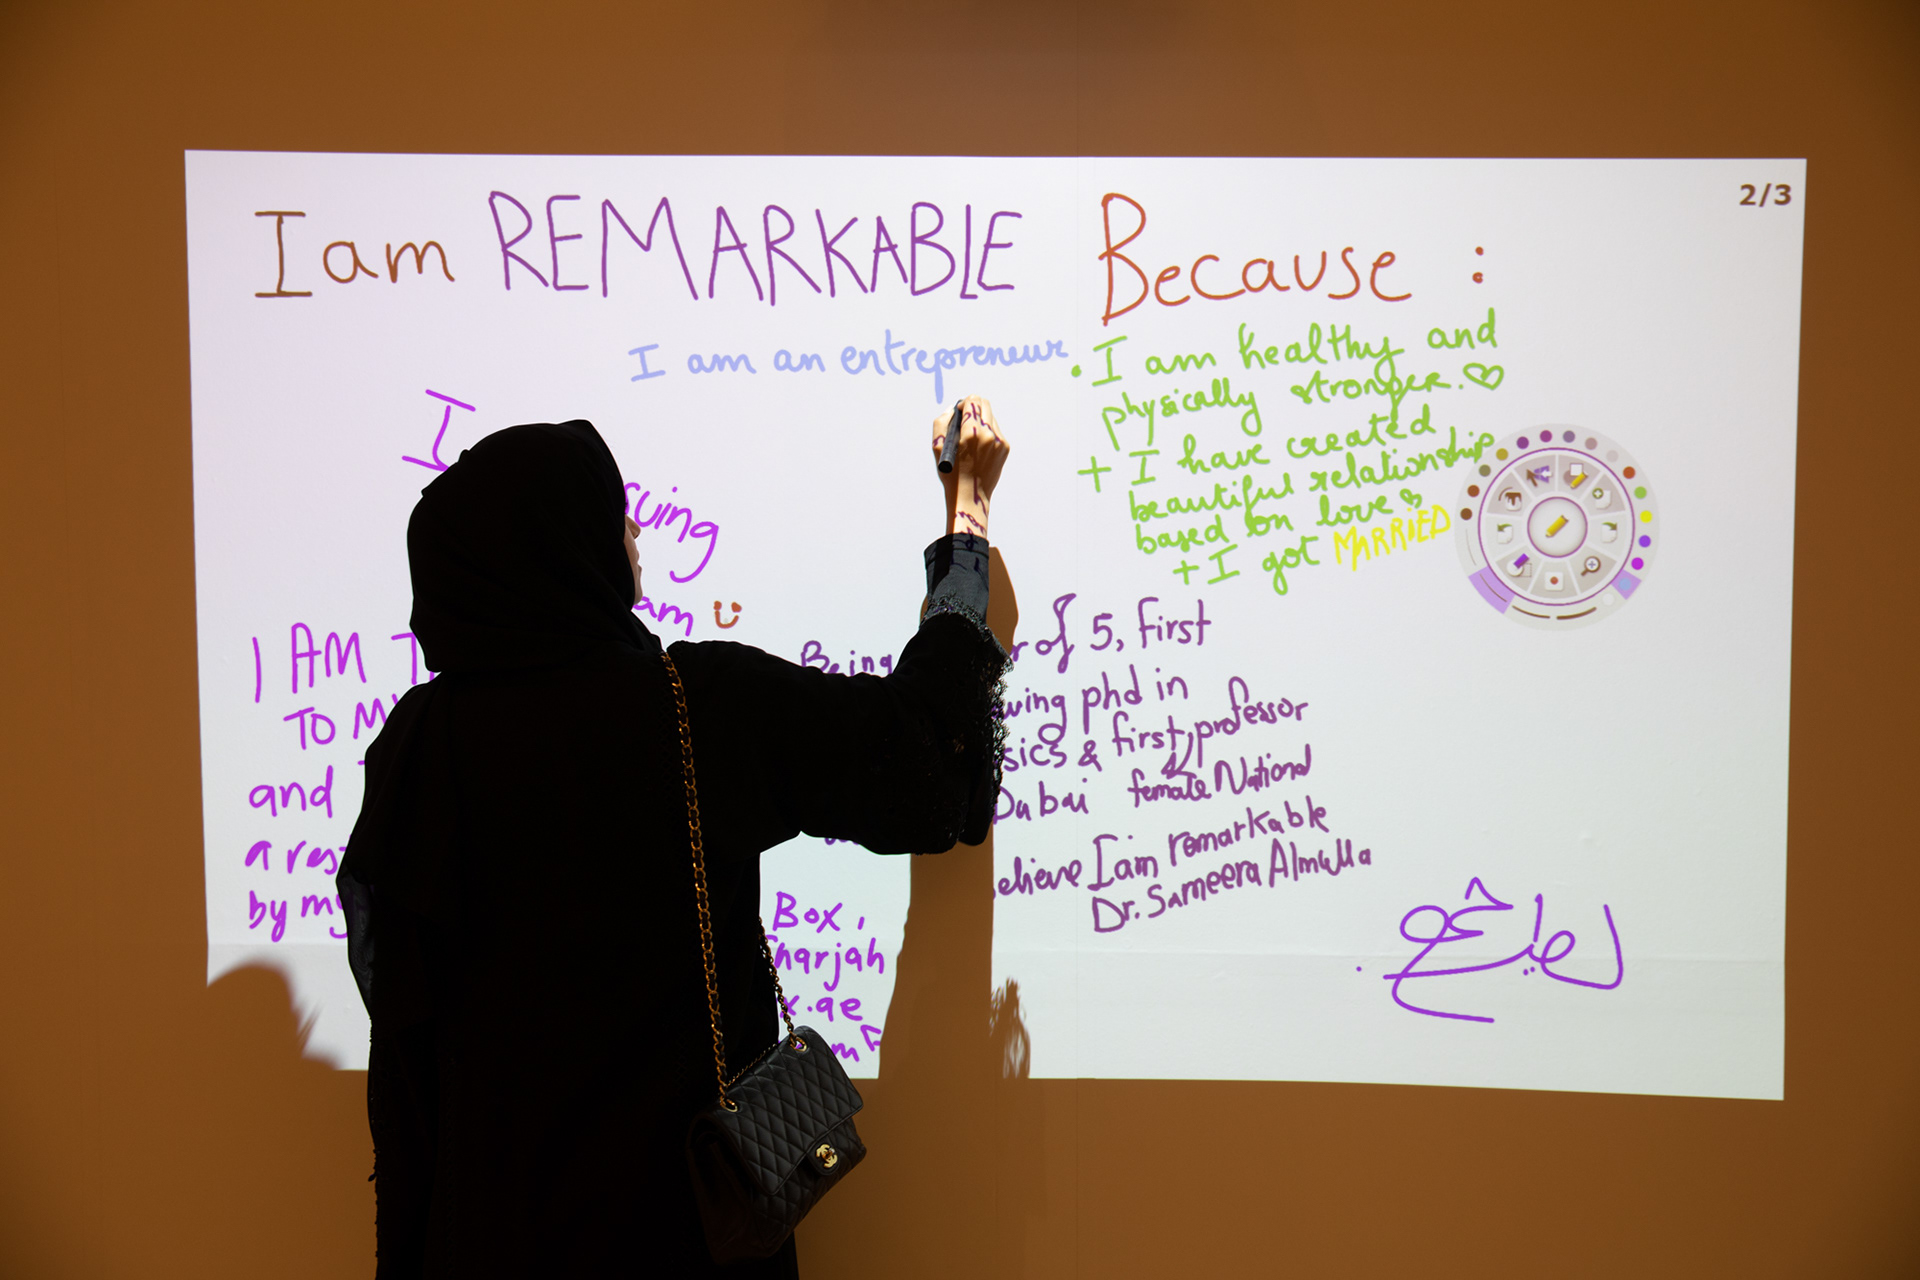 2/3
I am REMARKABLE Because :
I am an entrepreneur
• I am healthy and
physically stronger. ♡
+ I have created
beautiful relationship
based on love ♡
+ I got MARRIED
I
suing
am
I AM T
TO MY
and
a res
by my
Being
r of 5, First
wing phd in
sics & first professor
female National
Dubai
elieve I am remarkable
Dr. Sameera Almulla
Box,
Sharjah
x.ae